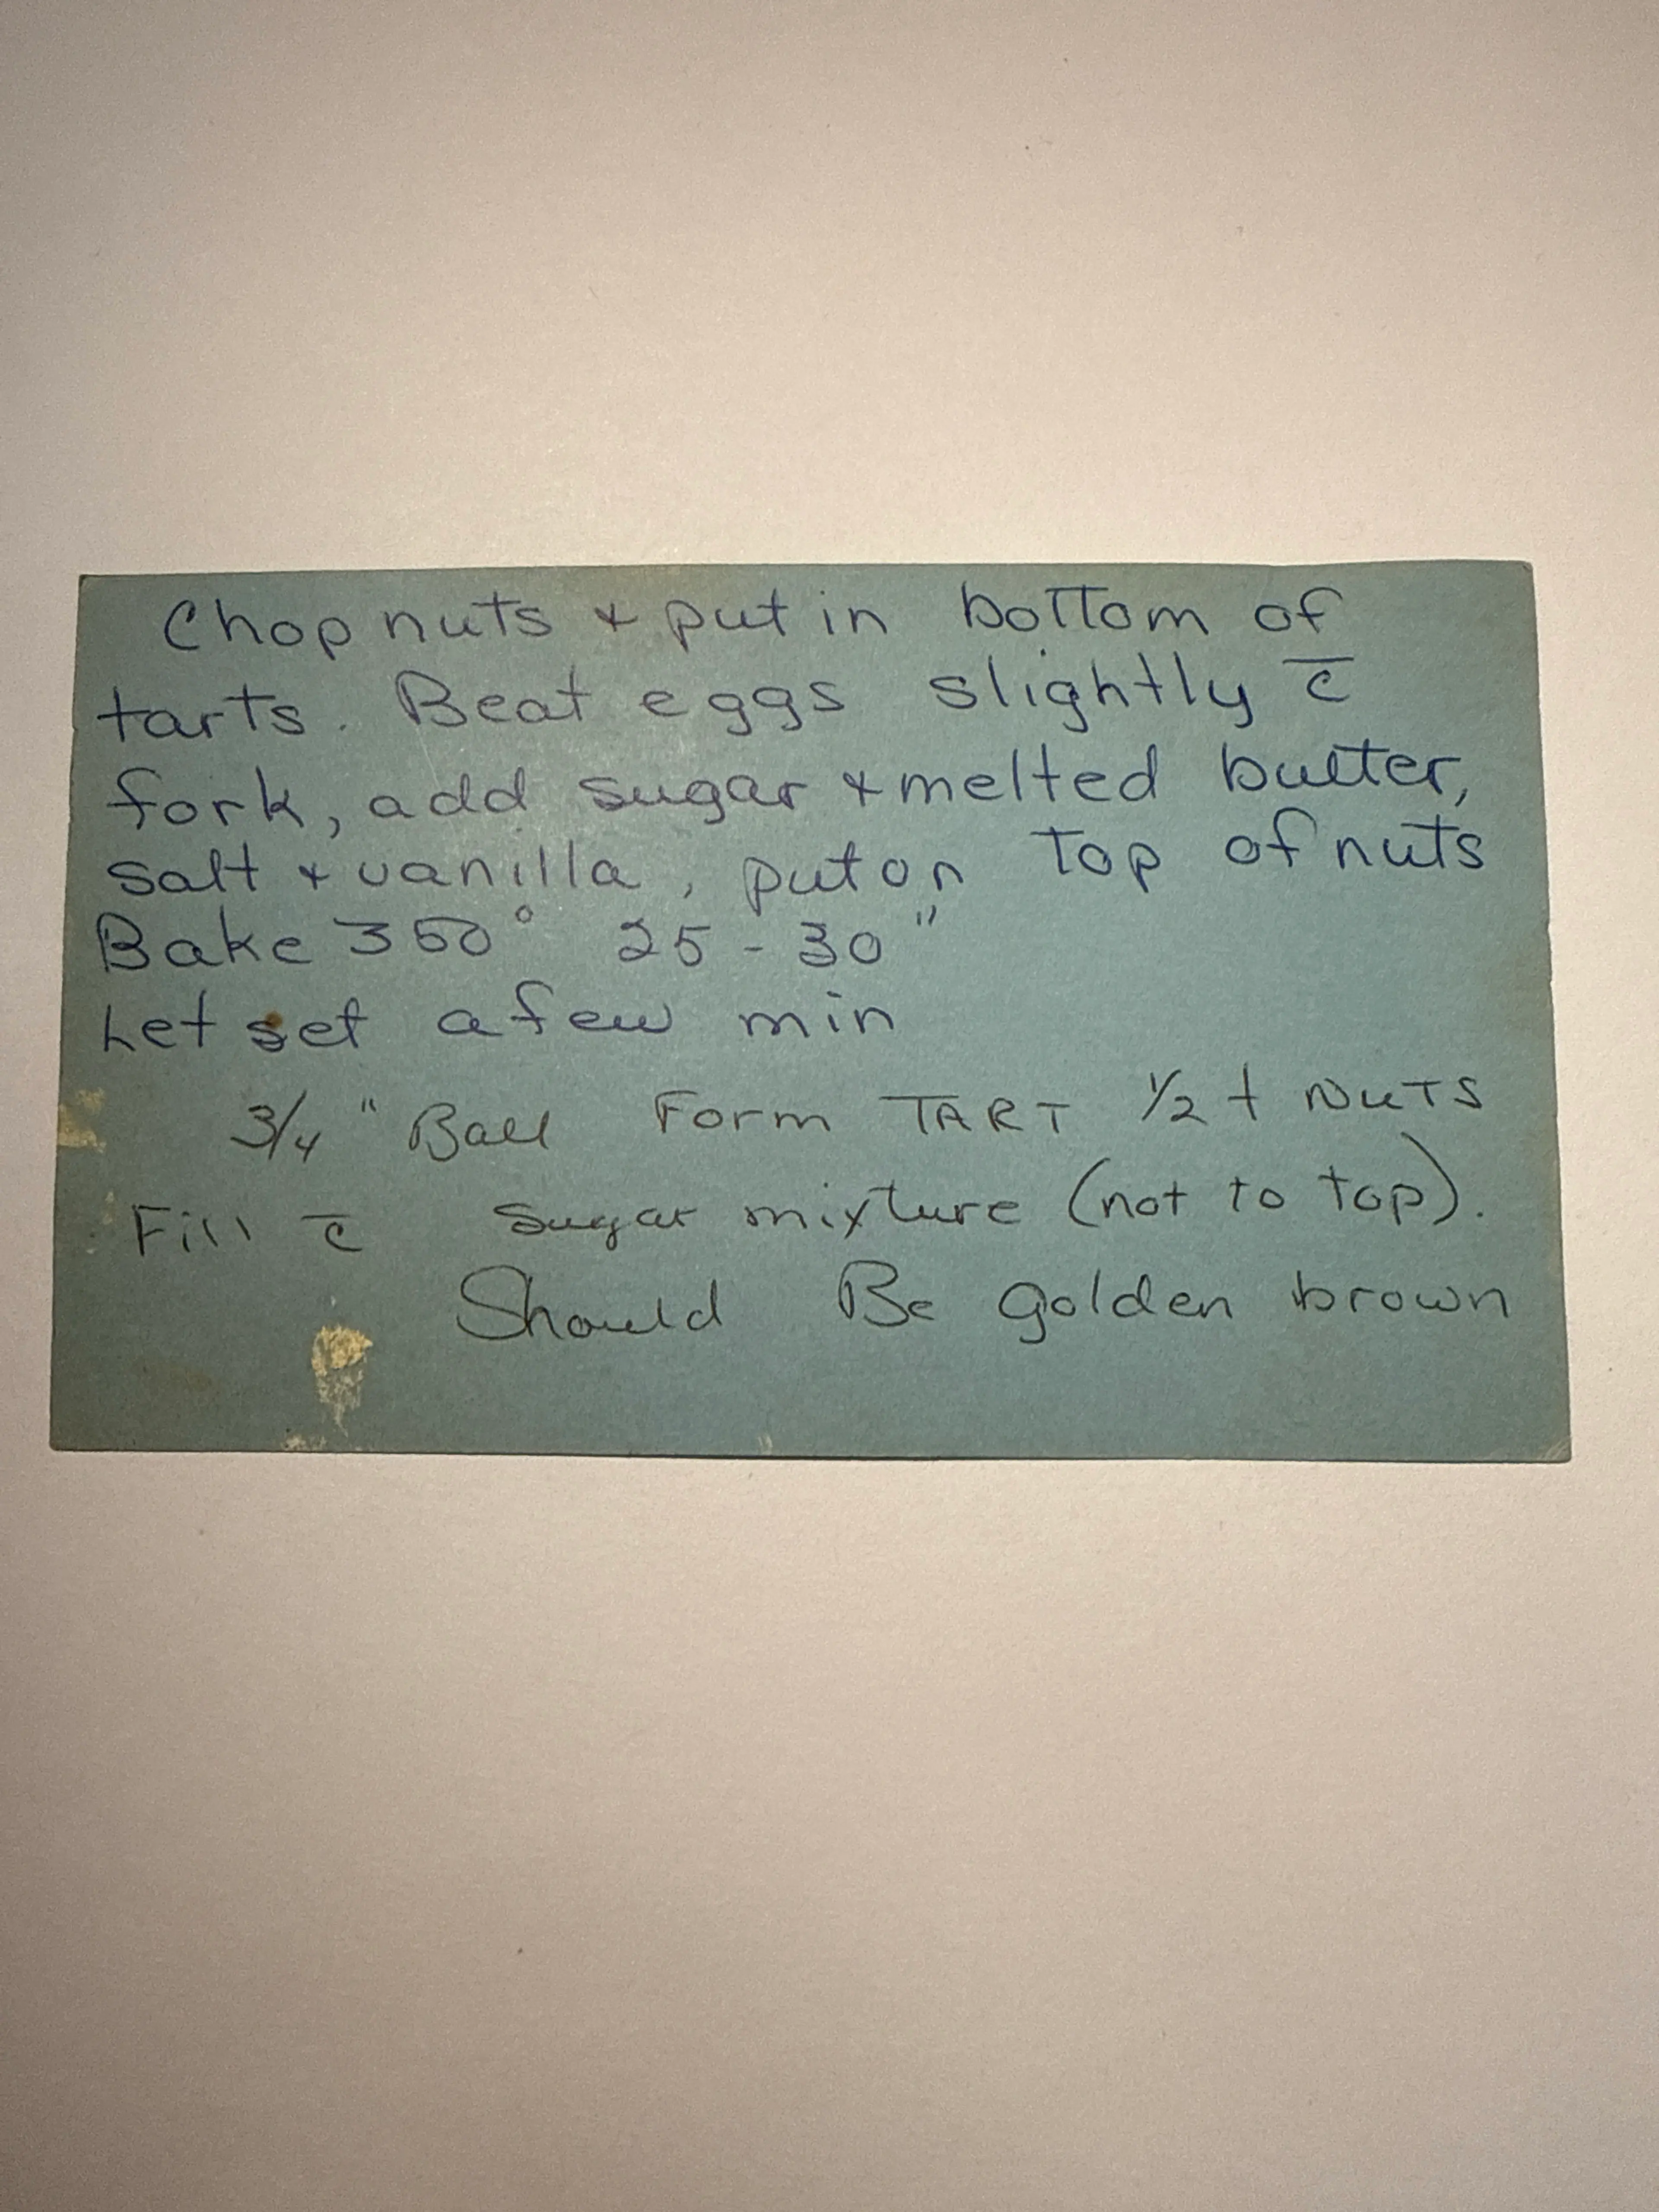 Chop nuts & put in bottom of
tarts. Beat eggs slightly c̄
fork, add sugar & melted butter,
salt & vanilla, put on top of nuts
Bake 350° 25 - 30"
Let set a few min
3/4" Ball Form TART 1/2 t NUTS
Fill c̄ sugar mixture (not to top).
Should Be golden brown